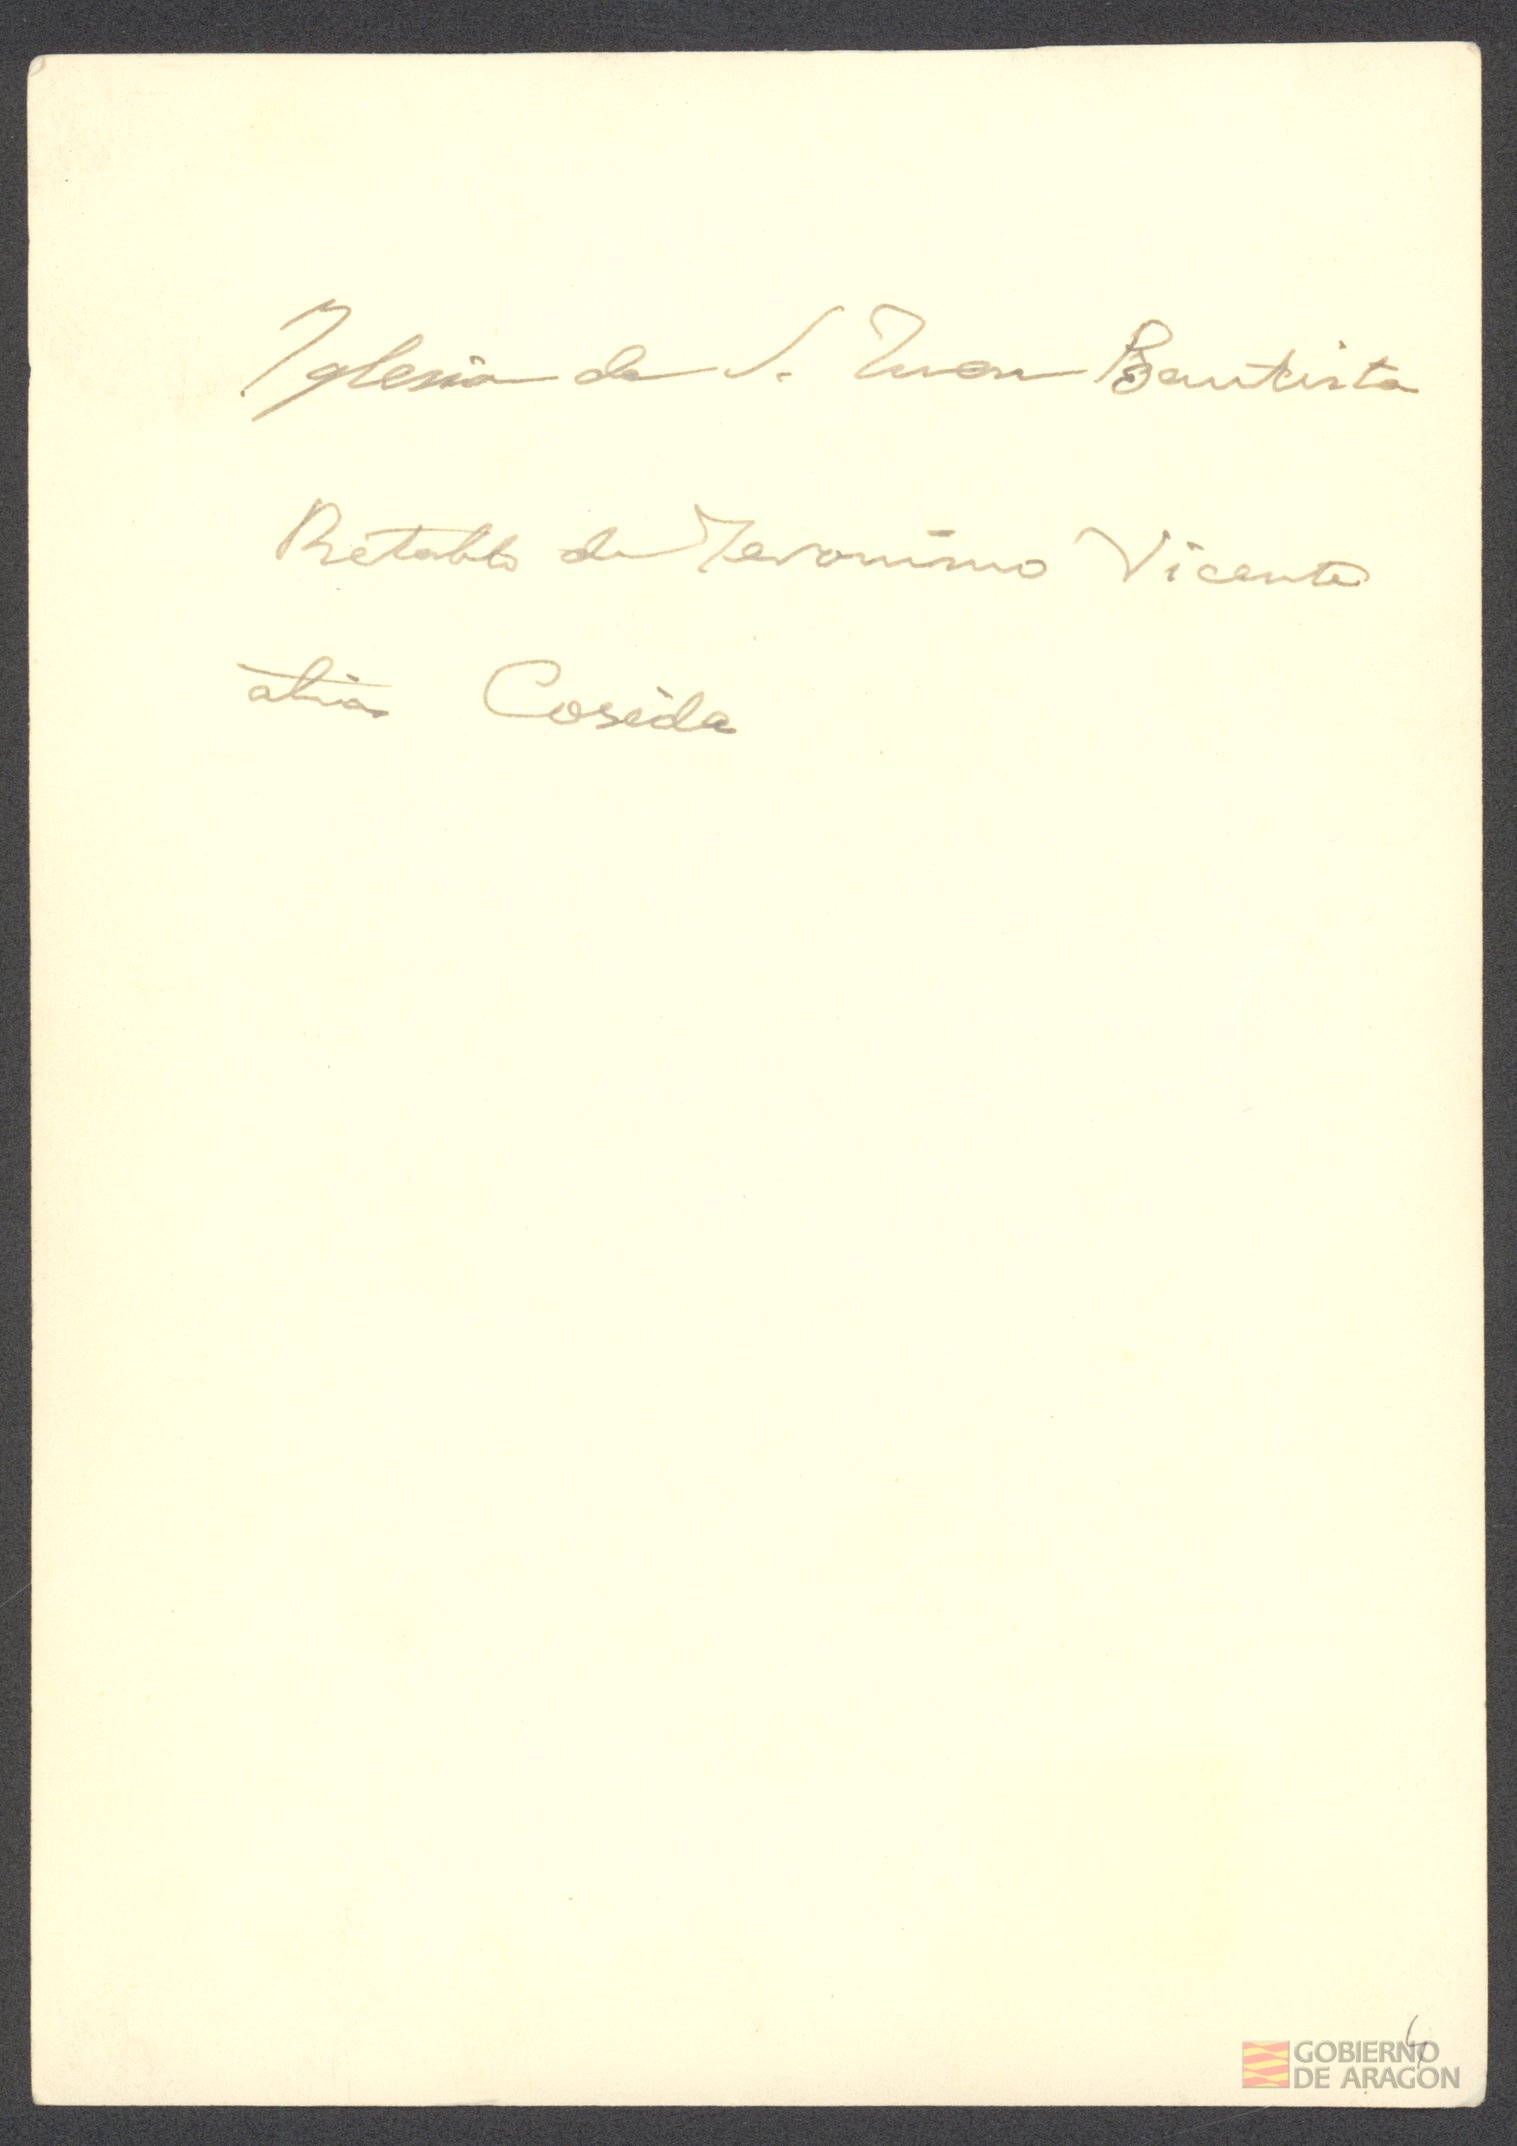 Iglesia de S. Juan Bautista
Retablo de Jeronimo Vicente
alias Coseida
4
GOBIERNO
DE ARAGON